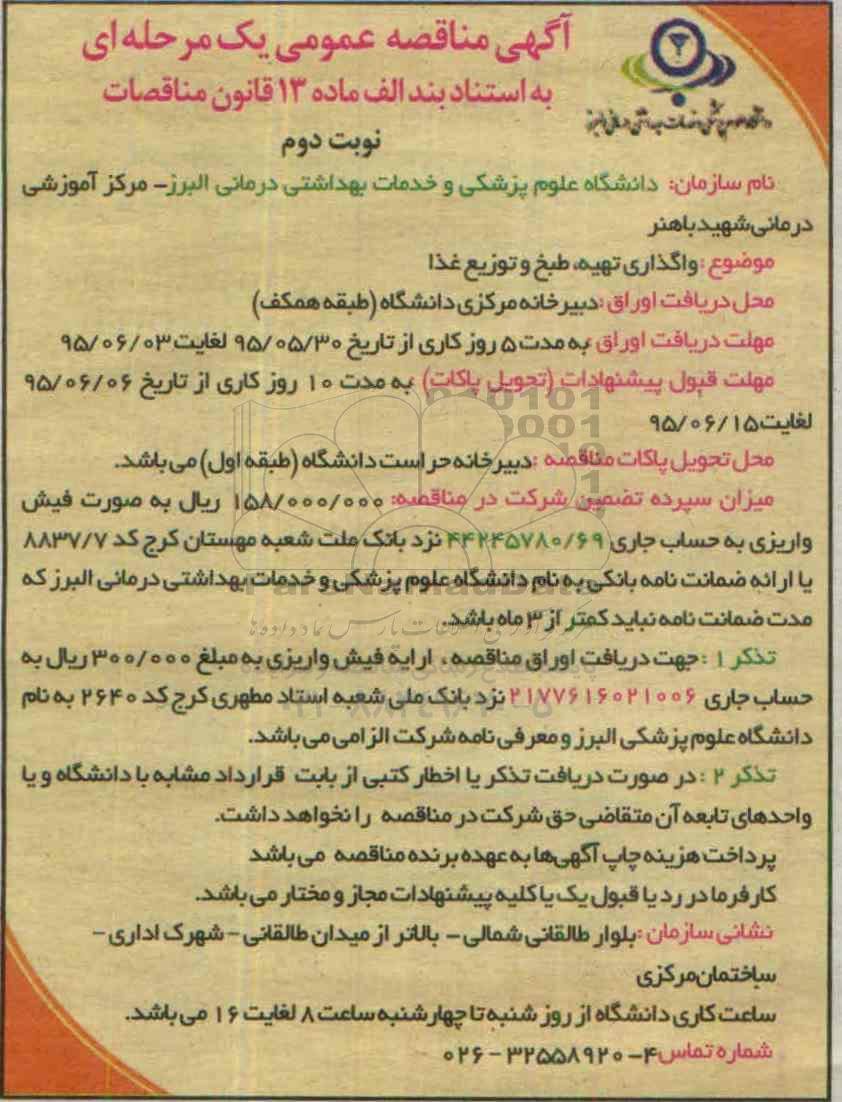 آگهی مناقصه عمومی یک مرحله ای
به استناد بند الف ماده ۱۳ قانون مناقصات
نوبت دوم
نام سازمان: دانشگاه علوم پزشکی و خدمات بهداشتی درمانی البرز- مرکز آموزشی
درمانی شهید باهنر
موضوع : واگذاری تهیه، طبخ و توزیع غذا
محل دریافت اوراق : دبیرخانه مرکزی دانشگاه (طبقه همکف)
مهلت دریافت اوراق : به مدت ۵ روز کاری از تاریخ ۹۵/۰۵/۳۰ لغایت ۹۵/۰۶/۰۳
مهلت قبول پیشنهادات (تحویل پاکات) : به مدت ۱۰ روز کاری از تاریخ ۹۵/۰۶/۰۶
لغایت ۹۵/۰۶/۱۵
محل تحویل پاکات مناقصه : دبیرخانه حراست دانشگاه (طبقه اول) می باشد.
میزان سپرده تضمین شرکت در مناقصه: ۱۵۸/۰۰۰/۰۰۰ ریال به صورت فیش
واریزی به حساب جاری ۴۴۲۴۵۷۸۰/۶۹ نزد بانک ملت شعبه مهستان کرج کد ۸۸۳۷/۷
یا ارائه ضمانت نامه بانکی به نام دانشگاه علوم پزشکی و خدمات بهداشتی درمانی البرز که
مدت ضمانت نامه نباید کمتر از ۳ ماه باشد.
تذکر ۱ : جهت دریافت اوراق مناقصه ، ارایه فیش واریزی به مبلغ ۳۰۰/۰۰۰ ریال به
حساب جاری ۲۱۷۷۶۱۶۰۲۱۰۰۶ نزد بانک ملی شعبه استاد مطهری کرج کد ۲۶۴۰ به نام
دانشگاه علوم پزشکی البرز و معرفی نامه شرکت الزامی می باشد.
تذکر ۲ : در صورت دریافت تذکر یا اخطار کتبی از بابت قرارداد مشابه با دانشگاه و یا
واحدهای تابعه آن متقاضی حق شرکت در مناقصه را نخواهد داشت.
پرداخت هزینه چاپ آگهی‌ها به عهده برنده مناقصه می باشد
کارفرما در رد یا قبول یک یا کلیه پیشنهادات مجاز و مختار می باشد.
نشانی سازمان : بلوار طالقانی شمالی - بالاتر از میدان طالقانی - شهرک اداری -
ساختمان مرکزی
ساعت کاری دانشگاه از روز شنبه تا چهارشنبه ساعت ۸ لغایت ۱۶ می باشد.
شماره تماس ۴-۳۲۵۵۸۹۲۰-۰۲۶